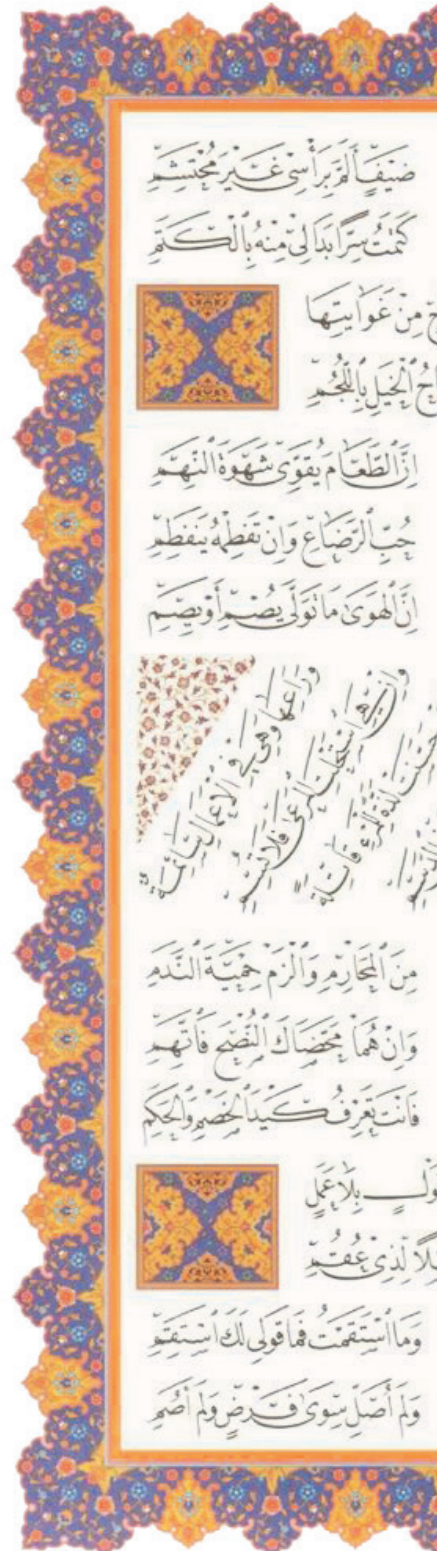 ضَيْفٍ اَلَمَّ بِرَأْسِى غَيْرَ مُحْتَشِمِ
كَتَمْتُ سِرًّا بَدَا لِىْ مِنْهُ بِالْكَتَمِ
مِنْ غَوَايَتِهَا
احُ الْخَيْلِ بِاللُّجُمِ
اِنَّ الطَّعَامَ يُقَوِّىْ شَهْوَةَ النَّهِمِ
حُبِّ الرَّضَاعِ وَاِنْ تَفْطِمْهُ يَنْفَطِمِ
اِنَّ الْهَوَىٰ مَا تَوَلَّىٰ يُصْمِ أَوْ يَصِمِ
وَرَاعِهَا وَهْىَ فِى الْاَعْمَالِ سَائِمَةٌ
وَاِنْ هِىَ اسْتَحْلَتِ الْمَرْعَىٰ فَلَا تُسِمِ
حَسَّنَتْ لَذَّةً لِلْمَرْءِ قَاتِلَةً
مِنَ الْمَحَارِمِ وَالْزَمْ حِمْيَةَ النَّدَمِ
وَاِنْ هُمَا مَحَضَاكَ النُّصْحَ فَاتَّهِمِ
فَاَنْتَ تَعْرِفُ كَيْدَ الْخَصْمِ وَالْحَكَمِ
وْلٍ بِلَا عَمَلٍ
لًا لِذِىْ عُقُمِ
وَمَا اسْتَقَمْتُ فَمَا قَوْلِى لَكَ اسْتَقِمِ
وَلَمْ اُصَلِّ سِوَىٰ فَرْضٍ وَلَمْ اَصُمِ